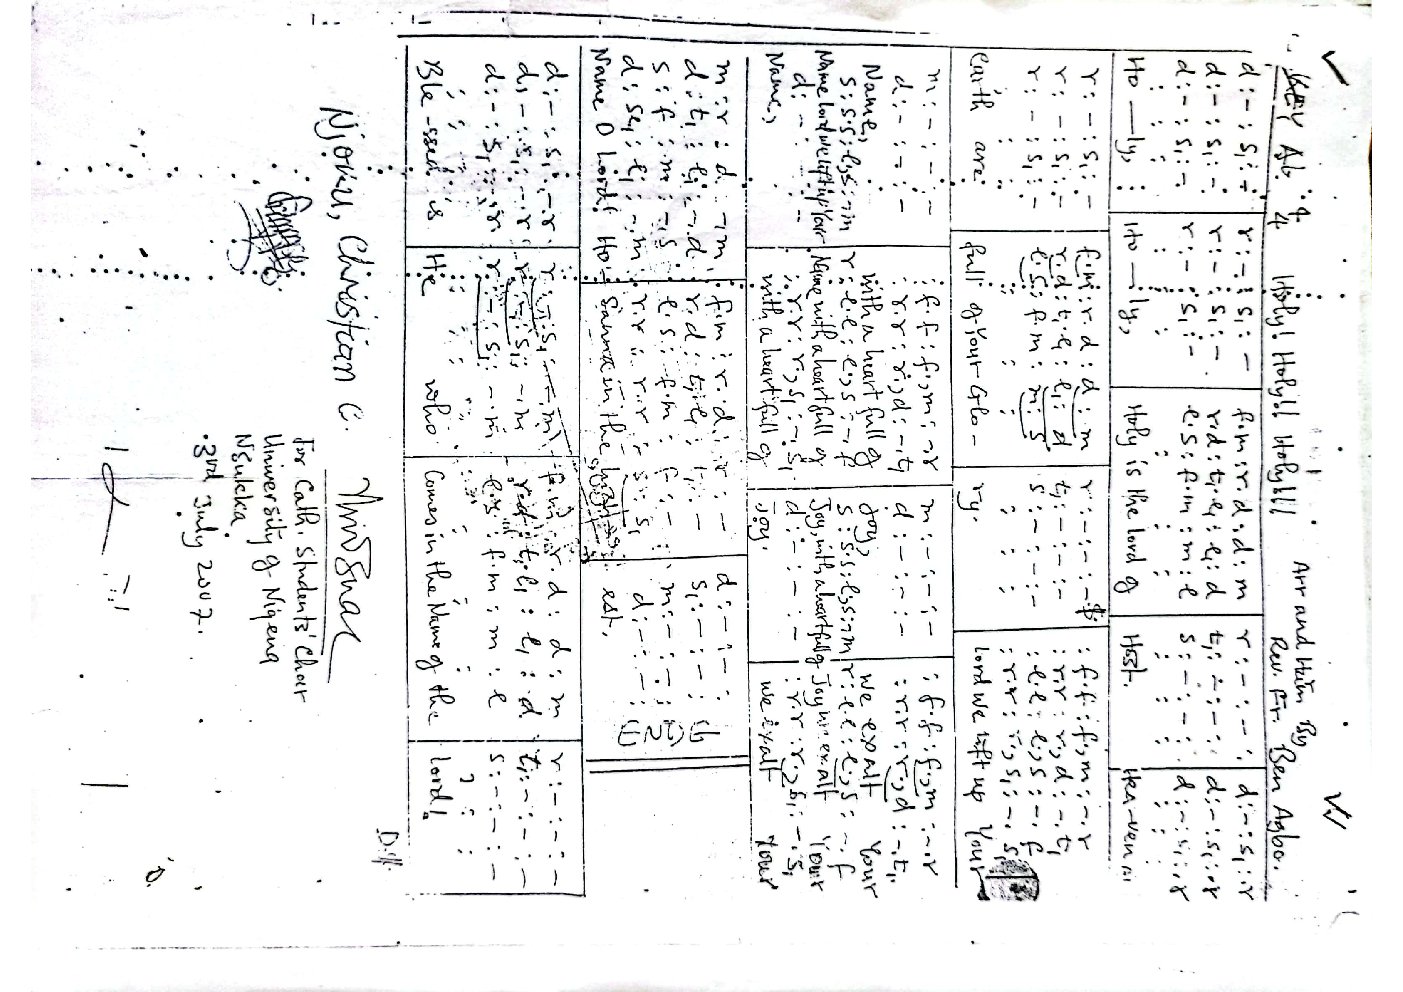 Key Ab. 4/4 Holy! Holy!! Holy!!! Arr and Harm By
Rev. Fr. Ben Agbo.
d : - : s₁ : - | r : - : s₁ : - | f.m : r.d : d : m | r : - : - : - | d : - : s₁ : .r
d : - : s₁ : - | r : - : s₁ : - | r.d : t₁.l₁ : l₁ : d | t₁ : - : - : - | d : - : s₁ : .r
d : - : s₁ : - | r : - : s₁ : - | l.s : f.m : m : l | s : - : - : - | d : - : s₁ : .r
Ho — ly, | Ho — ly, | Holy is the lord of | Host. | Hea-ven
r : - : s₁ : - | f.m : r.d : d : m | r : - : - : - | : f.f : f.,m : -.r
r : - : s₁ : - | r.d : t₁.l₁ : l₁ : d | t₁ : - : - : - | : r.r : r.,d : -.t₁
r : - : s₁ : - | l.s : f.m : m : s | s : - : - : - | : l.l : l.,s : -.f
: r.r : r.,s₁ : -.s₁
earth are | full of Your Glo - | ry. | lord we lift up Your
m : - : - : - | : f.f : f.,m : -.r | m : - : - : - | : f.f : f.,m : -.r
d : - : - : - | : r.r : r.,d : -.t₁ | d : - : - : - | : r.r : r.,d : -.t₁
Name, | with a heart full of | Joy, | we exalt Your
s : s.s : l.,s : -.m | r : l.l : l.,s : -.f | s : s.s : l.,s : -.m | r : l.l : l.,s : -.f
Name lord we lift up Your | Name with a heart full of | Joy, with a heart full of | Joy we exalt Your
d : - : - : - | : r.r : r.,s₁ : -.s₁ | d : - : - : - | : r.r : r.,s₁ : -.s₁
Name, | with a heart full of | Joy. | we exalt Your
m : r : d : -.m | f.m : r.d : r : - | d : - : - :
d : t₁ : l₁ : -.d | r.d : t₁.l₁ : t₁ : - | s₁ : - : - :
s : f : m : -.s | l.s : f.m : f : - | m : - : - :
d : se₁ : l₁ : -.m | r.r : r.r : s : s₁ | d : - : - :
Name O Lord! Ho- | sanna in the | est. ENDE
d : - : s₁ : -.r | r : - : s₁ : -.m | f.m : r.d : d : m | r : - : - : -
d : - : s₁ : -.r | r : - : s₁ : -.m | r.d : t₁.l₁ : l₁ : d | t₁ : - : - : -
d : - : s₁ : -.r | r : - : s₁ : -.m | l.s : f.m : m : l | s : - : - : -
Ble - ssed is | He who | Comes in the Name of the | lord!
Njoku, Christian C.
for Cath. Students' Choir
University of Nigeria
Nsukka.
3rd July 2007.